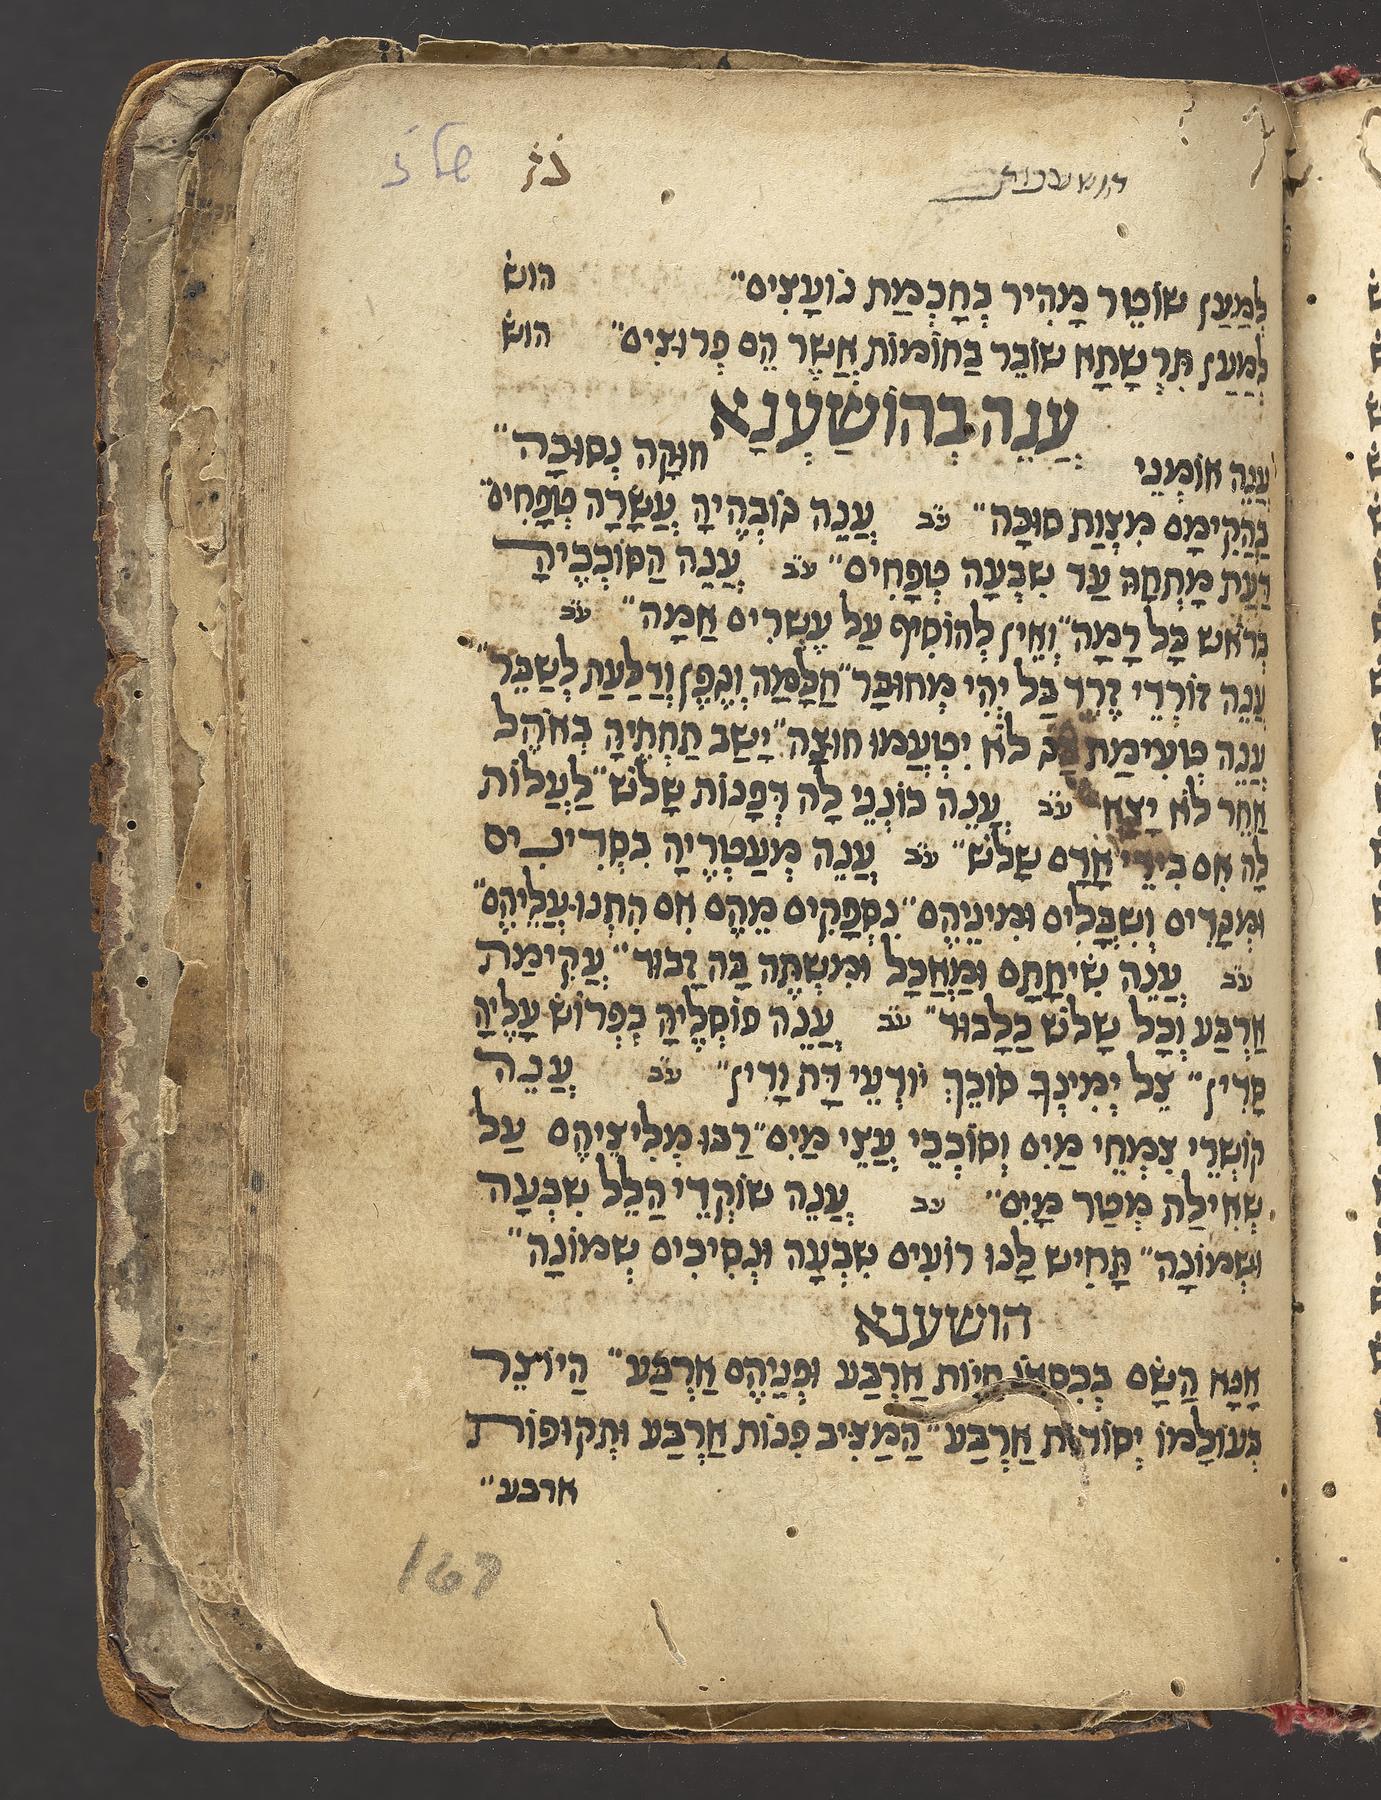 הושענות
לְמַעַן שׁוֹטֵר מָהִיר בְּחָכְמַת נוֹעָצִים הוש
לְמַעַן תִּרְשָׁתָא שׁוֹבֵר בַּחוֹמוֹת אֲשֶׁר הֵם פְּרוּצִים הוש
עֲנֵה בְּהוֹשַׁעְנָא
עֲנֵה אוֹמְנֵי חוּקָה נְסוּכָה
בַּהֲקִימָם מִצְוַת סוּכָּה עב עֲנֵה גוֹבְהֶיהָ עֲשָׂרָה טְפָחִים
דַּעַת מָתְחָהּ עַד שִׁבְעָה טְפָחִים עב עֲנֵה הַסּוֹכְכֶיהָ
בְּרֹאשׁ כָּל רָמָה וְאֵין לְהוֹסִיף עַל עֶשְׂרִים אַמָּה עב
עֲנֵה זוֹרְדֵי זֶרֶד בַּל יְהִי מְחוּבָּר וְגֶפֶן וְדַלַּעַת לְשַׁבֵּר
עֲנֵה טְעִימַת לֹא יִטְעֲמוּ חוּצָה יָשַׁב תַּחְתֶּיהָ בְּאֹהֶל
אַחֵר לֹא יָצָא עב עֲנֵה כּוֹנְנֵי לָהּ דְּפָנוֹת שָׁלֹשׁ לַעֲלוֹת
לָהּ אִם בִּידֵי אָדָם שָׁלֹשׁ עב עֲנֵה מְעַטְּרֶיהָ בִּסְדִינִים
וּמְגָדִים וְשִׁבֳּלִים וּמִינֵיהֶם נִסְפָּקִים מֵהֶם אִם הִתְנוּ עֲלֵיהֶם
עב עֲנֵה שִׂיחָתָם וּמַאֲכָל וּמִשְׁתֶּה בָּהּ זָבוּר עֲקִימַת
אַרְבַּע וְכָל שָׁלֹשׁ כַּלָּבוּד עב עֲנֵה פוֹסְלֶיהָ בִּפְרוֹשׂ עָלֶיהָ
סָדִין צֵל יְמִינְךָ סוֹכֵךְ יוֹדְעֵי דָּת וָדִין עב עֲנֵה
קוֹשְׁרֵי צִמְחֵי מַיִם וְסוֹכְכֵי עֲצֵי מַיִם רַבּוּ מְלִיצֵיהֶם עַל
שְׁאִילַת מְטַר מָיִם עב עֲנֵה שׁוֹקְדֵי הַלֵּל שִׁבְעָה
וּשְׁמוֹנָה תָּחִישׁ לָנוּ רוֹעִים שִׁבְעָה וּנְסִיכִים שְׁמוֹנָה
הושענא
אָנָּא הַשָּׂם בְּכִסְאוֹ חַיּוֹת אַרְבַּע וּפְנֵיהֶם אַרְבַּע הַיּוֹצֵר
בְּעוֹלָמוֹ יְסוֹדוֹת אַרְבַּע הַמַּצִּיב פִּנּוֹת אַרְבַּע וּתְקוּפוֹת
ארבע
167